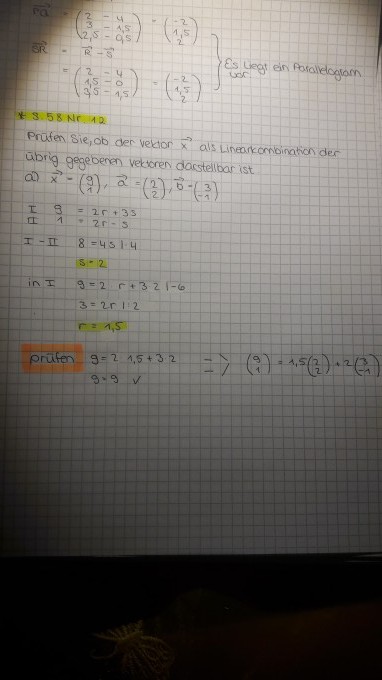 PQ = (2 - 4 / 3 - 1,5 / 2,5 - 0,5) = (-2 / 1,5 / 2)
SR = R - S
= (2 - 4 / 1,5 - 0 / 3,5 - 1,5) = (-2 / 1,5 / 2)
Es liegt ein Parallelogram
vor
* S. 58 Nr. 12
Prüfen Sie, ob der vektor x als Linearkombination der
übrig gegebenen vektoren darstellbar ist
a) x = (9 / 1), a = (2 / 2), b = (3 / -1)
I 9 = 2r + 3s
II 1 = 2r - s
I - II 8 = 4s |: 4
s = 2
in I 9 = 2 r + 3 2 | -6
3 = 2r |: 2
r = 1,5
prüfen 9 = 2 · 1,5 + 3 · 2 => (9 / 1) = 1,5 (2 / 2) + 2 (3 / -1)
9 = 9 ✓